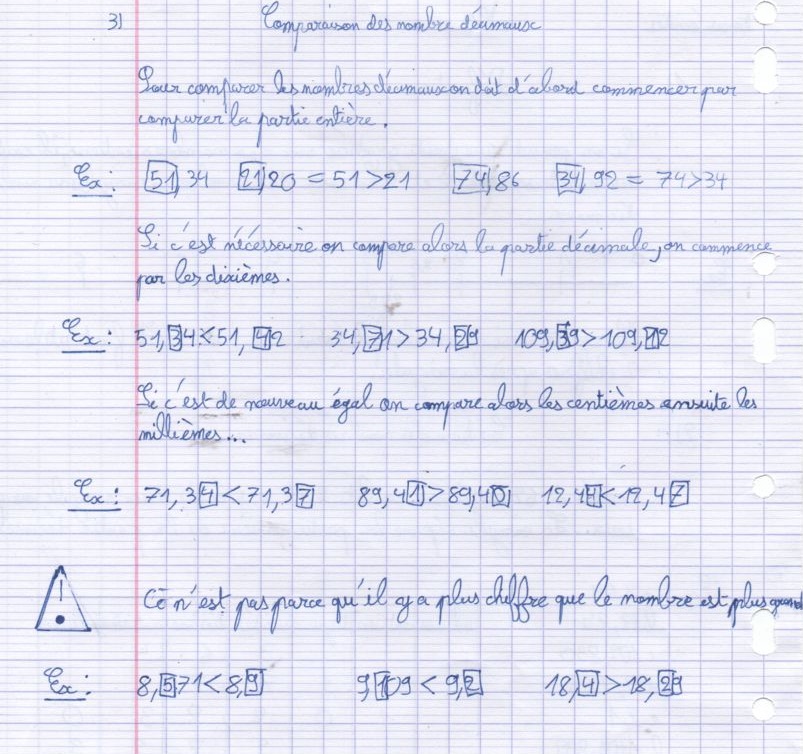 3) Comparaison des nombre décimaux
Pour comparer les nombres décimaux on doit d'abord commencer par
comparer la partie entière.
Ex : 51,34 21,20 = 51 > 21 74,86 34,92 = 74 > 34
Si c'est nécessaire on compare alors la partie décimale, on commence
par les dixièmes.
Ex : 51,34 < 51,42 34,71 > 34,29 109,39 > 109,12
Si c'est de nouveau égal on compare alors les centièmes ensuite les
millièmes...
Ex : 71,34 < 71,37 89,41 > 89,40 12,4 < 12,47
! Ce n'est pas parce qu'il y a plus chiffre que le nombre est plus grand
Ex : 8,571 < 8,9 9,109 < 9,2 18,4 > 18,29